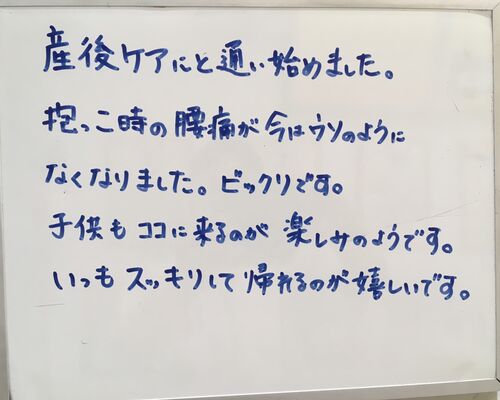 産後ケアにと通い始めました。
抱っこ時の腰痛が今はウソのように
なくなりました。ビックリです。
子供もココに来るのが楽しみのようです。
いつもスッキリして帰れるのが嬉しいです。